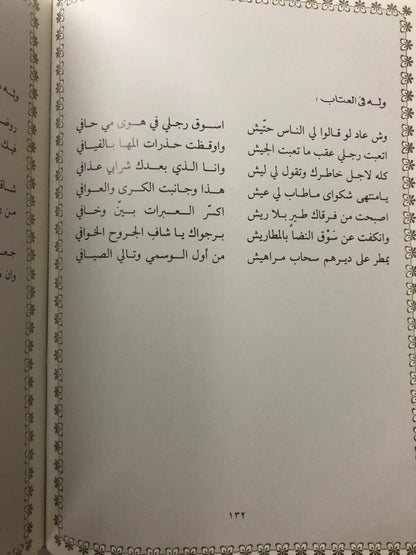 وله في العتاب :
وش عاد لو قالوا لي الناس حتّيش اسوق رجلي في هوى مي حافي
اتعبت رجلي عقب ما تعبت الجيش واوقظت حذرات المها بالفيافي
كله لاجل خاطرك وتقول لي ليش وانا الذي بعدك شرابي عذافي
يامنتهى شكواي ماطاب لي عيش هذا وجانبت الكرى والعوافي
اصبحت من فرقاك طير بلا ريش اكسر العبرات بيّن وخافي
وانكفت عن سَوْق النضا بالمطاريش برجواك يا شافِ الجروح الخوافي
يمطر على ديرهم سحاب مراهيش من أول الوسمي وتالي الصيافي
١٣٢
وله
روض
فيك
شاق
من
جعـ
وان